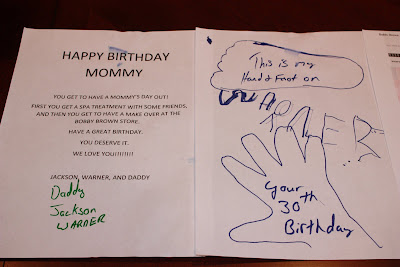 HAPPY BIRTHDAY
MOMMY
YOU GET TO HAVE A MOMMY'S DAY OUT!
FIRST YOU GET A SPA TREATMENT WITH SOME FRIENDS,
AND THEN YOU GET TO HAVE A MAKE OVER AT THE
BOBBY BROWN STORE.
HAVE A GREAT BIRTHDAY.
YOU DESERVE IT.
WE LOVE YOU!!!!!!!!
JACKSON, WARNER, AND DADDY
Daddy
Jackson
WARNER
This is my
Hand & Foot on
WARNER
Your
30th
Birthday